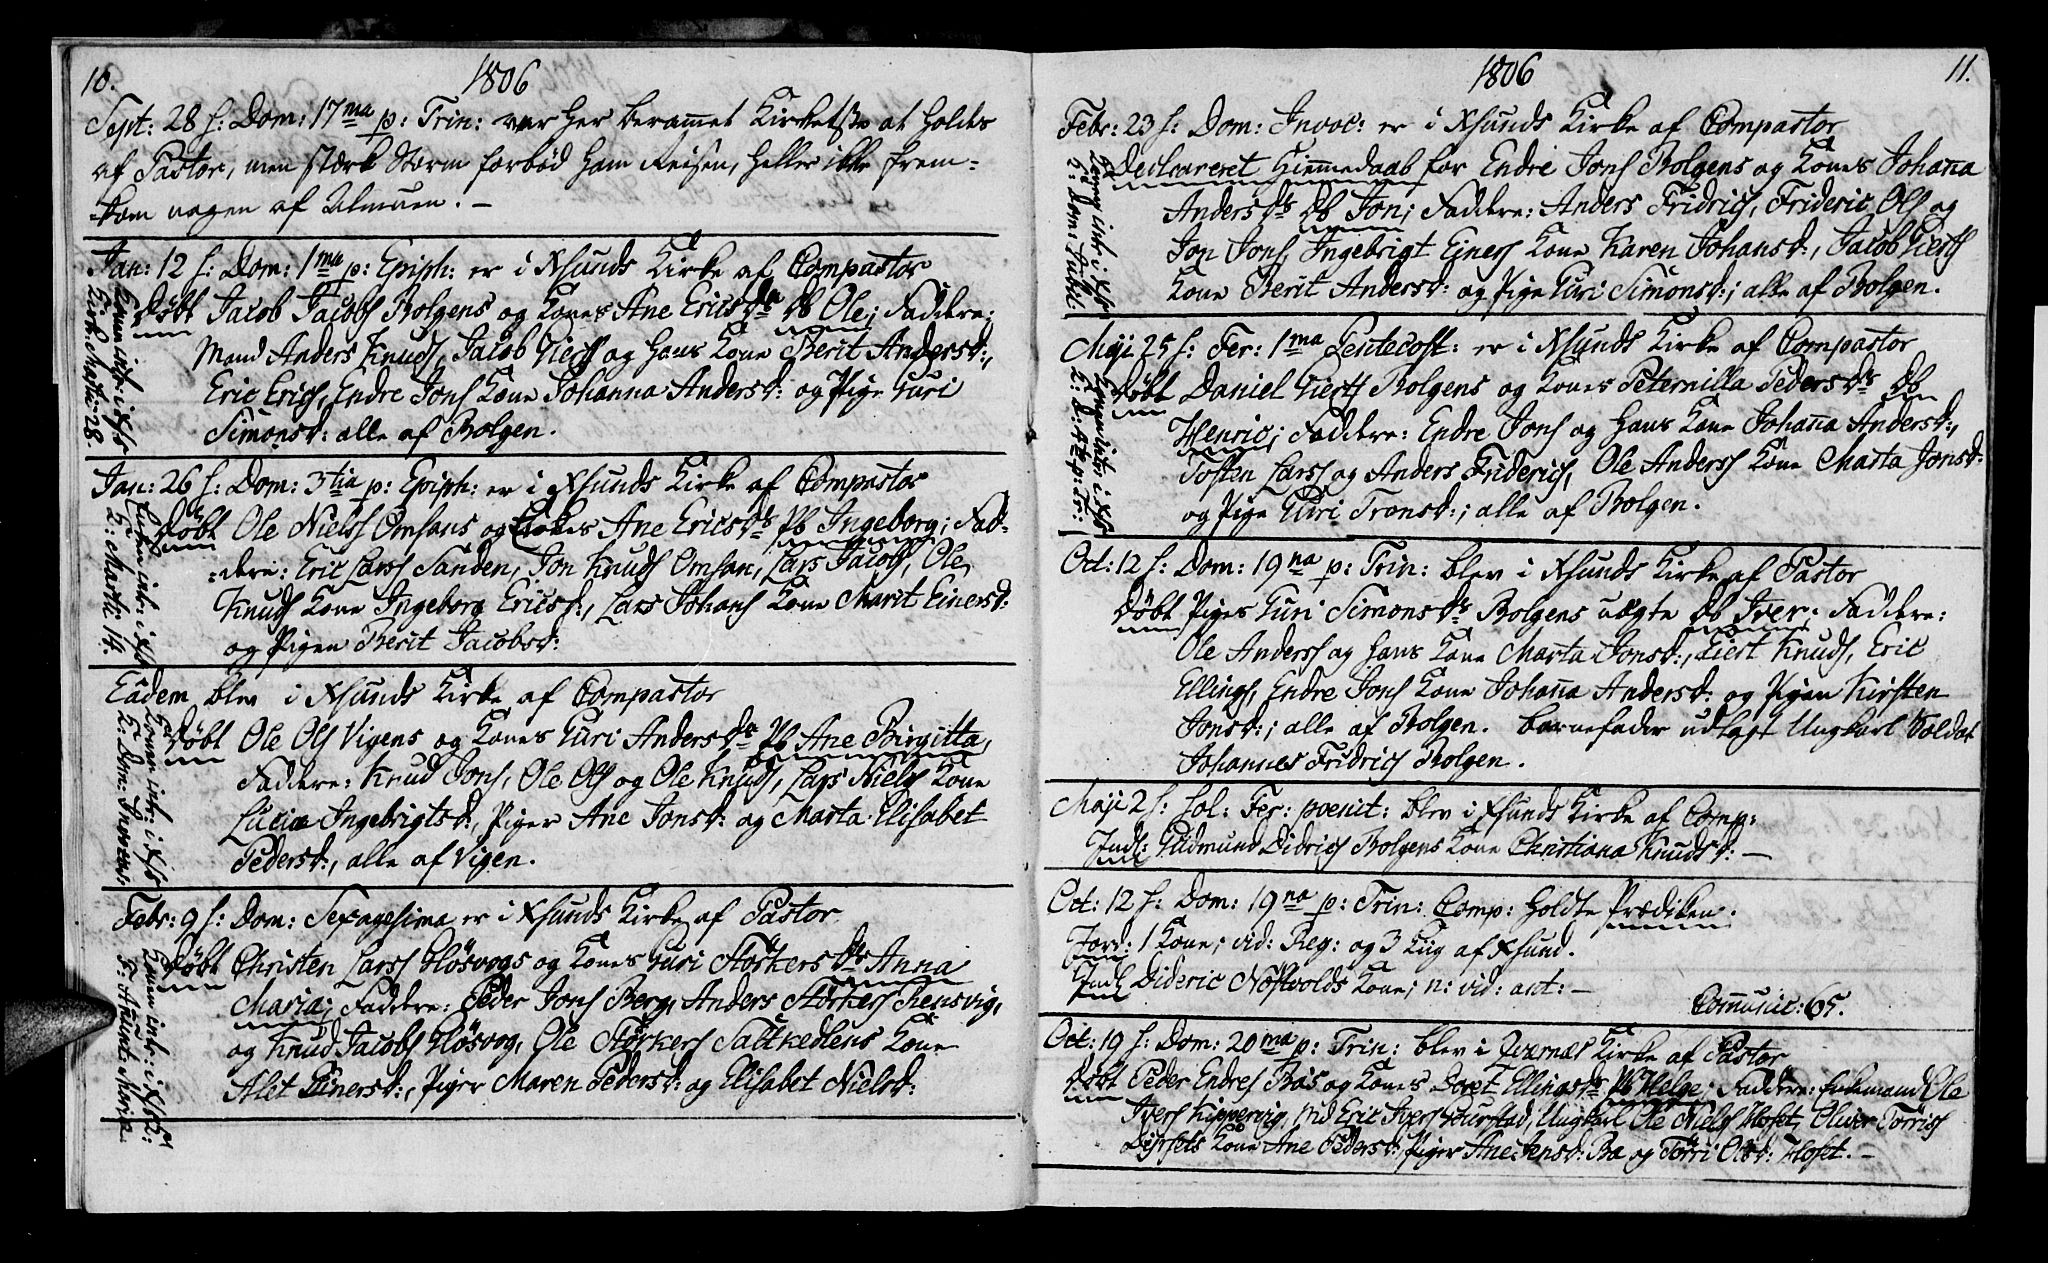 10.
1806
Sept: 28 s: Dom: 17ma p: Trin: var her berammet Kirketienste at holdes
af Pastor, men stærk Storm forbød ham Reisen, heller ikke frem-
-kom nogen af Almuen. -
Jan: 12 s: Dom: 1ma p: Epiph: er i Xsunds Kirke af Compastor
Døbt Jacob Jacobs Bolgens og Kones Ane Ericsdr DB Ole; Faddere:
Mand Anders Knuds, Jacob Giertss og hans Kone Berit Andersd:,
Eric Erics, Endre Jons Kone Johanna Andersd: og Pige Guri
Simonsd: alle af Bolgen.
Konen intr: i Xs
Kirk: Martii 28.
Jan: 26 s: Dom: 3tia p: Epiph: er i Xsunds Kirke af Compastor
Døbt Ole Niels Omsans og Kones Ane Ericsdr PB Ingeborg; Fad-
dere: Eric Lars Sanden, Jon Knuds Omsan, Lars Jacobs, Ole
Knuds Kone Ingeborg Ericsd:, Lars Johans Kone Marit Einersd:
og Pigen Berit Jacobsd:
Konen intr: i Xs
K: Martii 14.
Eadem blev i Xsunds Kirke af Compastor
Døbt Ole Ols Vigens og Kones Guri Andersdr PB Ane Birgitta,
Faddere: Knud Jons, Ole Ols og Ole Knuds, Lars Niels Kone
Lucia Ingebrigtsd:, Piger Ane Jonsd: og Marta Elisabet
Pedersd:, alle af Vigen.
Konen intr: i Xs
K: Dom: Invocav:
Febr: 9 s: Dom: Sexagesima er i Xsunds Kirke af Pastor
Døbt Christen Lars Fløsvogs og Kones Guri Størkersdr Anna
Maria; Faddere: Peder Jons Berg, Anders Størkers Rensvig,
og Knud Jacobs Fløsvog, Ole Størkers Saltkedlens Kone
Alet Einersd:, Piger Maren Pedersd: og Elisabet Nielsd:
Konen intr: i Xs K:
F: Anunt: Mariæ
1806
11.
Febr: 23 s: Dom: Invoc: er i Xsunds Kirke af Compastor
Declareret Hiemmedaab for Endre Jons Bolgens og Kones Johanna
Andersdr DB Jon; Faddere: Anders Fridrics, Frideric Ols og
Jon Jons, Ingebrigt Einers Kone Karen Johansd:, Jacob Giertss
Kone Berit Andersd: og Pige Guri Simonsd:; alle af Bolgen.
Konen intr: i Xs
K: Dom: Jubil:
Maji 25 s: Fer: 1ma Pentecost: er i Xsunds Kirke af Compastor
Døbt Daniel Giertss Bolgens og Kones Peternilla Pedersdr DB
Henric; Faddere: Endre Jons og hans Kone Johanna Andersd:,
Tosten Larss og Anders Friderics, Ole Anderss Kone Marta Jonsd:
og Pige Guri Tronsd:; alle af Bolgen.
Konen intr: i Xs
K: D: 4te p: Tr:
Oct: 12 s: Dom: 19na p: Trin: blev i Xsunds Kirke af Pastor
Døbt Piges Guri Simonsdr Bolgens uægte DB Iver; Faddere:
Ole Anderss og hans Kone Marta Jonsd:, Giert Knuds, Eric
Ellings, Endre Jons Kone Johanna Andersd: og Pigen Kirsten
Jonsd:; alle af Bolgen. Barnefader udlagt Ungkarl Soldat
Johannes Fridrics Bolgen.
Maji 2 s: Sol: Fer: poenit: blev i Xsunds Kirke af Comp:
Indl: Gudmund Didrics Bolgens Kone Christiana Knudsd: -
Oct: 12 s: Dom: 19na p: Trin: Comp: holdte Prædiken.
Jord: 1 Kone; vid: Reg: og 3 Liig af Xsund.
Indl Dideric Nostvolds Kone; n: vid: ant: -
Com̅unic: 65.
Oct: 19 s: Dom: 20ma p: Trin: blev i Qvernæs Kirke af Pastor
Døbt Peder Endres Bas og Kones Doret Ellingsdr PB Helge; Faddere: Enkemand Ole
Ivers Kippervig, Eric Ivers Gurstad, Ungkarl Ole Niels Hoset, Oliver Torris
Diisets Kone Ane Pedersd:, Piger Ane Jensd: Ba og Torri Olsd: Hoset. -